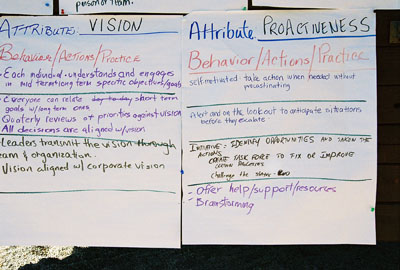 personal team.
ATTRIBUTE: VISION
Behavior/Actions/Practice
- Each individual understands and engages
in mid term long term specific objectives/goals
- Everyone can relate day to day short term
goals w/long term ones
- Quaterly reviews of priorities against vision
- All decisions are aligned w/vision
- Leaders transmit the vision through
team & organization.
- Vision aligned w/ corporate vision
Attribute PROACTIVENESS
Behavior/Actions/Practice
self motivated take action when needed without
procrastinating
Alert and on the lookout to anticipate situations
before they escalate
INITIATIVE: IDENTIFY OPPORTUNITIES AND TAKEN THE
ACTIONS
CREATE TASK FORCE TO FIX OR IMPROVE
CERTAIN PROBLEMS
challenge the status-quo
- Offer help/support/resources
- Brainstorming